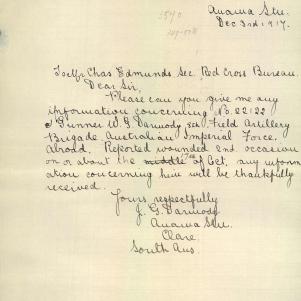 Anama Stn.
Dec 3rd. 1917.
Chas Edmunds Sec. Red Cross Bureau.
Dear Sir,
Please can you give me any
information concerning No. 22122
Gunner W. G. Darmody 3rd Field Artillery
Brigade Australian Imperial Force.
Abroad. Reported wounded 2nd. occasion
on or about the middle of Oct, any inform
ation concerning him will be thankfully
received.
Yours respectfully
J. G. Darmody
Anama Stn.
Clare.
South Aus.